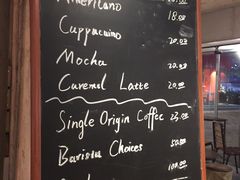 Americano
Cappuccino 20.00
Mocha 20.00
Caramel Latte 20.00
Single Origin Coffee 25.00
Barista Choices 50.00
100.00